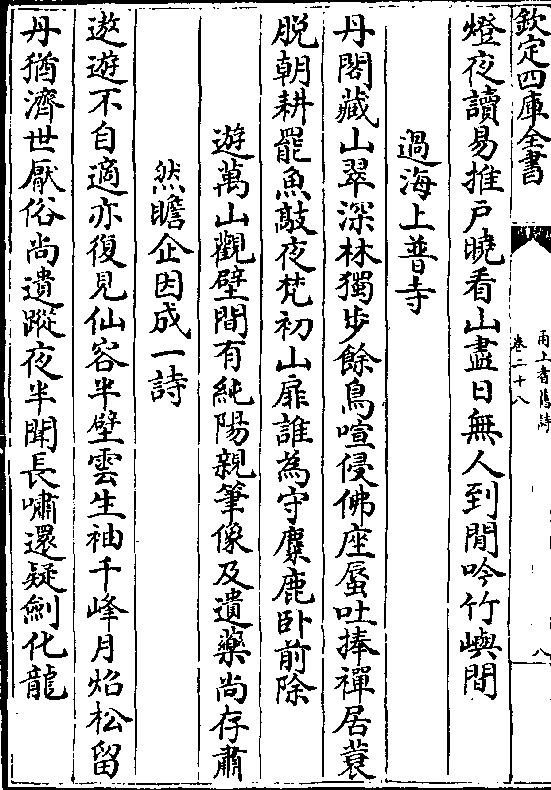 欽定四庫全書
甬上耆舊詩
卷二十八
八
燈夜讀易推戶曉看山盡日無人到閒吟竹嶼間
過海上普寺
丹閣藏山翠深林獨步餘鳥喧侵佛座蜃吐捧禪居蓑
脫朝耕罷魚敲夜梵初山扉誰為守麋鹿卧前除
遊萬山觀壁間有純陽親筆像及遺藥尚存肅
然瞻企因成一詩
遨遊不自適亦復見仙容半壁雲生袖千峰月炤松留
丹猶濟世厭俗尚遺蹤夜半聞長嘯還疑劍化龍